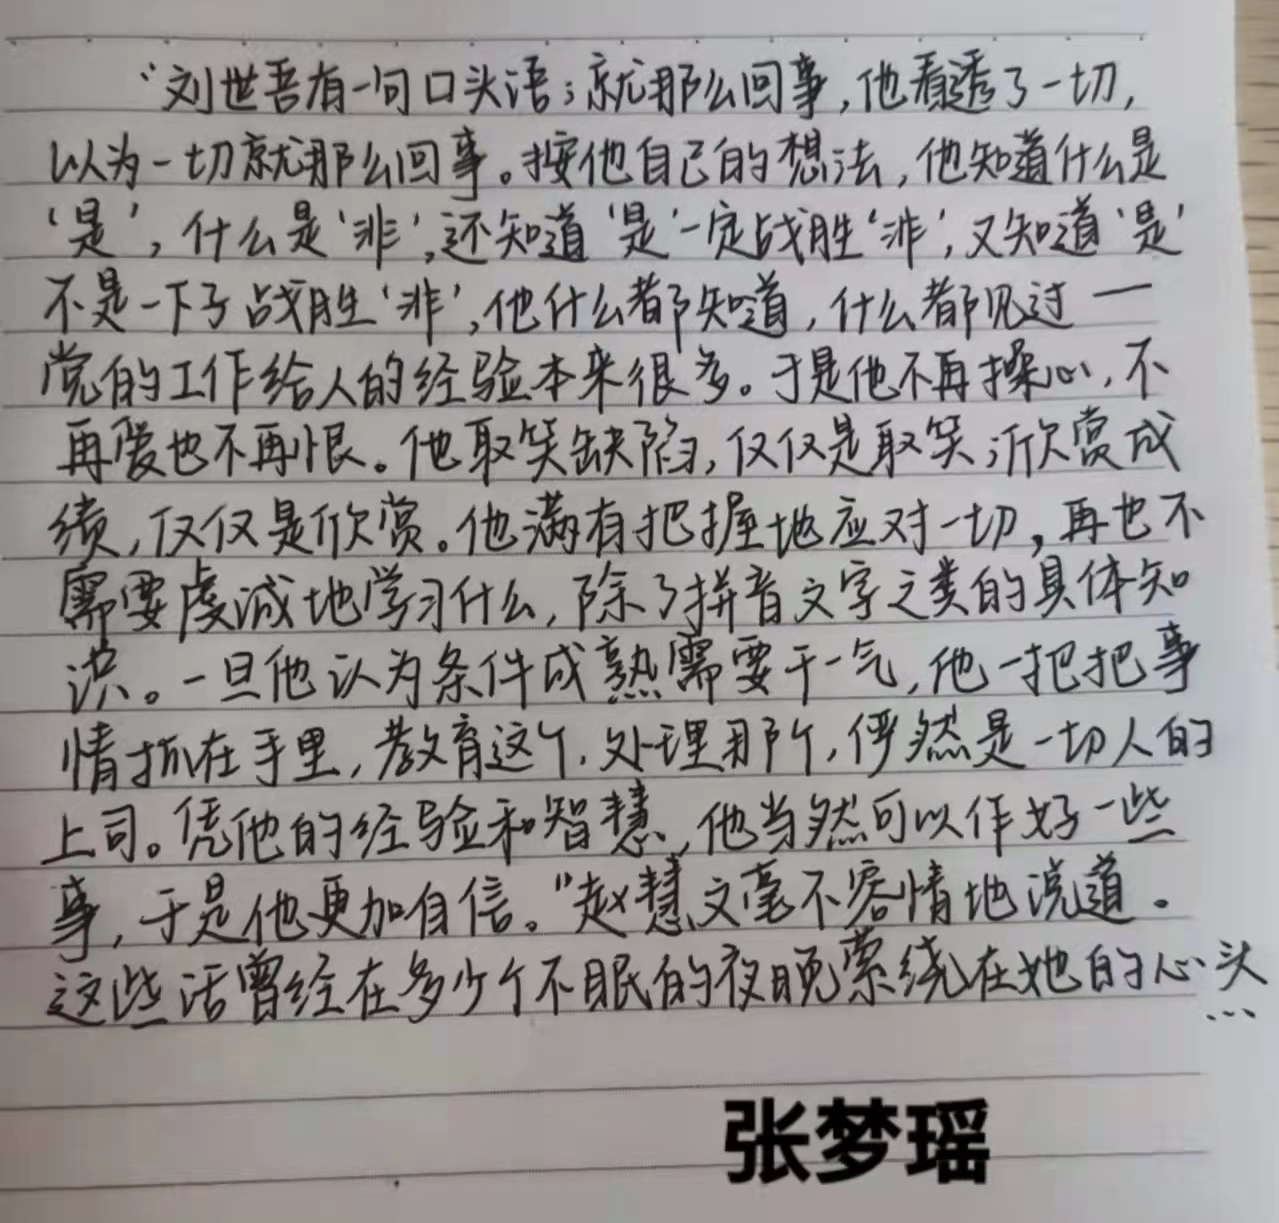 “刘世吾有一句口头语：就那么回事，他看透了一切，
以为一切就那么回事。按他自己的想法，他知道什么是
‘是’，什么是‘非’，还知道‘是’一定战胜‘非’，又知道‘是’
不是一下子战胜‘非’，他什么都知道，什么都见过一
党的工作给人的经验本来很多。于是他不再操心，不
再爱也不再恨。他取笑缺陷，仅仅是取笑；欣赏成
绩，仅仅是欣赏。他满有把握地应对一切，再也不
需要虔诚地学习什么，除了拼音文字之类的具体知
识。一旦他认为条件成熟需要干一气，他一把把事
情抓在手里，教育这个，处理那个，俨然是一切人的
上司。凭他的经验和智慧，他当然可以作好一些
事，于是他更加自信。”赵慧文毫不容情地说道。
这些话曾经在多少个不眠的夜晚萦绕在她的心头
…
张梦瑶